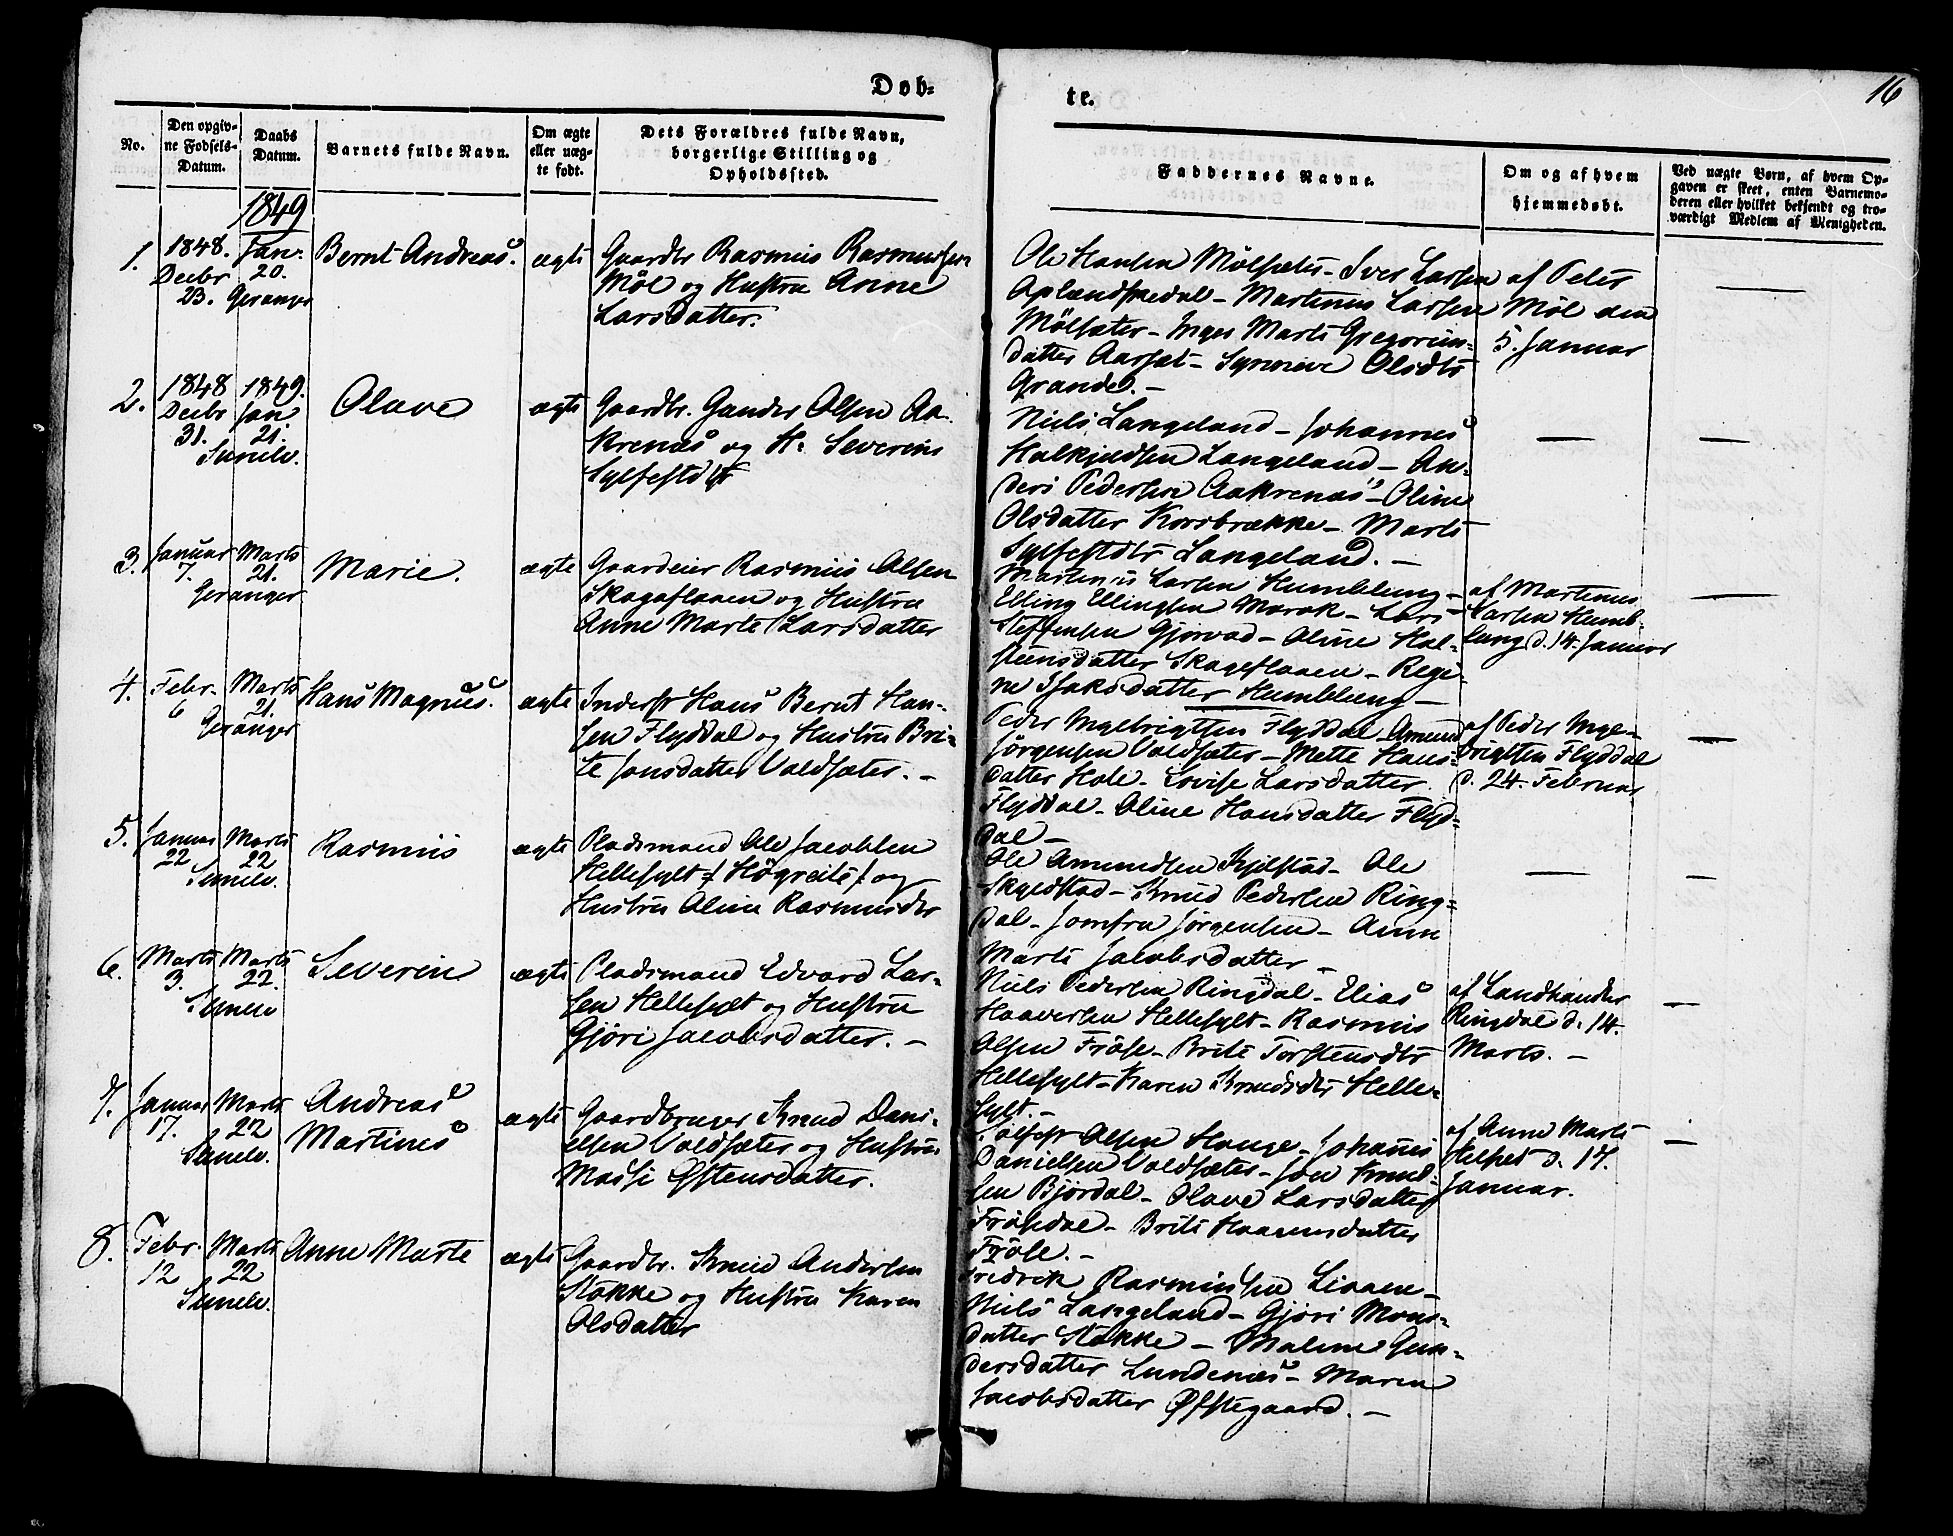 Døb=
te.
16
No.
Den opgiv-
ne Fødsels-
Datum.
Daabs
Datum.
Barnets fulde Navn.
Om ægte
eller uæg-
te født.
Dets Forældres fulde Navn,
borgerlige Stilling og
Opholdssted.
Faddernes Navne.
Om og af hvem
hjemmedøbt.
Ved uægte Børn, af hvem Op-
gaven er skeet, enten Barnemo-
deren eller hvilket bekjendt og tro-
værdigt Medlem af Menigheden.
1849
1.
1848.
Decbr
23.
Jan.
20.
Geranger
Bernt Andreas.
ægte
Gaardbr Rasmus Rasmussen
Møl og Hustru Anne
Larsdatter.
Ole Hansen Mølsæter - Iver Larsen
Oplændskedal - Martinus Larsen
Mölsæter - Inger Marte Gregorius-
datter Aarsæt - Synneve Olsdtr
Grande. -
af Peter
Møl den
5. Januar
2.
1848
Decbr
31.
1849.
Jan
21.
Sunelv.
Olave
ægte
Gaardbr. Gunder Olsen Aa-
krenæs og H. Severine
Sylfestdtr
Niels Langeland - Johannes
Halkjeldsen Langeland - An-
ders Pedersen Aakrenæs - Oline
Olsdatter Korsbrække - Marte
Sylfestdtr Langeland. -
3.
Januar
7.
Marts
21.
Geranger
Marie.
ægte
Gaardeier Rasmus Olsen
Skageflaaen og Hustru
Anne Marte Larsdatter
Martinus Larsen Humblung -
Elling Ellingsen Marok - Lars
Steffensen Gjørvad - Oline Hal-
steensdatter Skageflaaen - Regi-
ne Isaksdatter Humblung -
af Martinus
Larsen Humb-
lung d. 14. Januar
4.
Febr.
6
Marts
21.
Geranger
Hans Magnus.
ægte
Inderst Hans Bernt Han-
sen Flyddal og Hustru Bri-
te Jonsdatter Voldsæter. -
Peder Ingebrigtsen Flyddal - Amund
Jørgensen Voldsæter - Mette Hans-
datter Hole - Lovise Larsdatter
Flyddal - Oline Hansdatter Flyd=
dal -
af Peder Inge-
brigtsen Flyddal
d. 24. Februar
5.
Januar
22
Marts
22
Sunelv.
Rasmus
ægte
Pladsmand Ole Jacobsen
Hellesylt /: Högreite :/ og
Hustru Oline Rasmusdtr
Ole Amundsen Kjelstad - Ole
Skjedstad - Knud Pedersen Ring=
dal - Jomfru Jørgensen - Anne
Marte Jacobsdatter -
6.
Marts
3.
Marts
22.
Sunelv
Severin
ægte
Pladsmand Edvard Lar-
sen Hellesylt og Hustru
Gjöri Jacobsdatter. -
Niels Pedersen Ringdal - Elias
Haaversen Hellesylt - Rasmus
Olsen Frøse - Brite Torstensdtr
Hellesylt - Karen Knudsdtr Helle-
sylt. -
af Landhandler
Ringdal d. 14.
Marts. -
7.
Januar
17.
Marts
22
Sunelv.
Andreas
Martinus
ægte
Gaardbruger Knud Dani-
elsen Voldsæter og Hustru
Massi Østensdatter.
Sylfest Olsen Hauge - Johannes
Danielsen Voldsæter - Jon Knud-
sen Bjørdal - Olave Larsdatter
Frøsdal - Brite Haavensdatter
Frøse. -
af Anne Marte
d. 17.
Januar.
8.
Febr.
12
Marts
22
Sunelv.
Anne Marte
ægte
Gaardbr. Knud Andersen
Stokke og Hustru Karen
Olsdatter
Fredrik Rasmussen Liaane -
Niels Langeland - Gjøri Mons-
datter Stokke - Malene Gun-
dersdatter Lundenæs - Maren
Jacobsdatter Øfstegaard. -